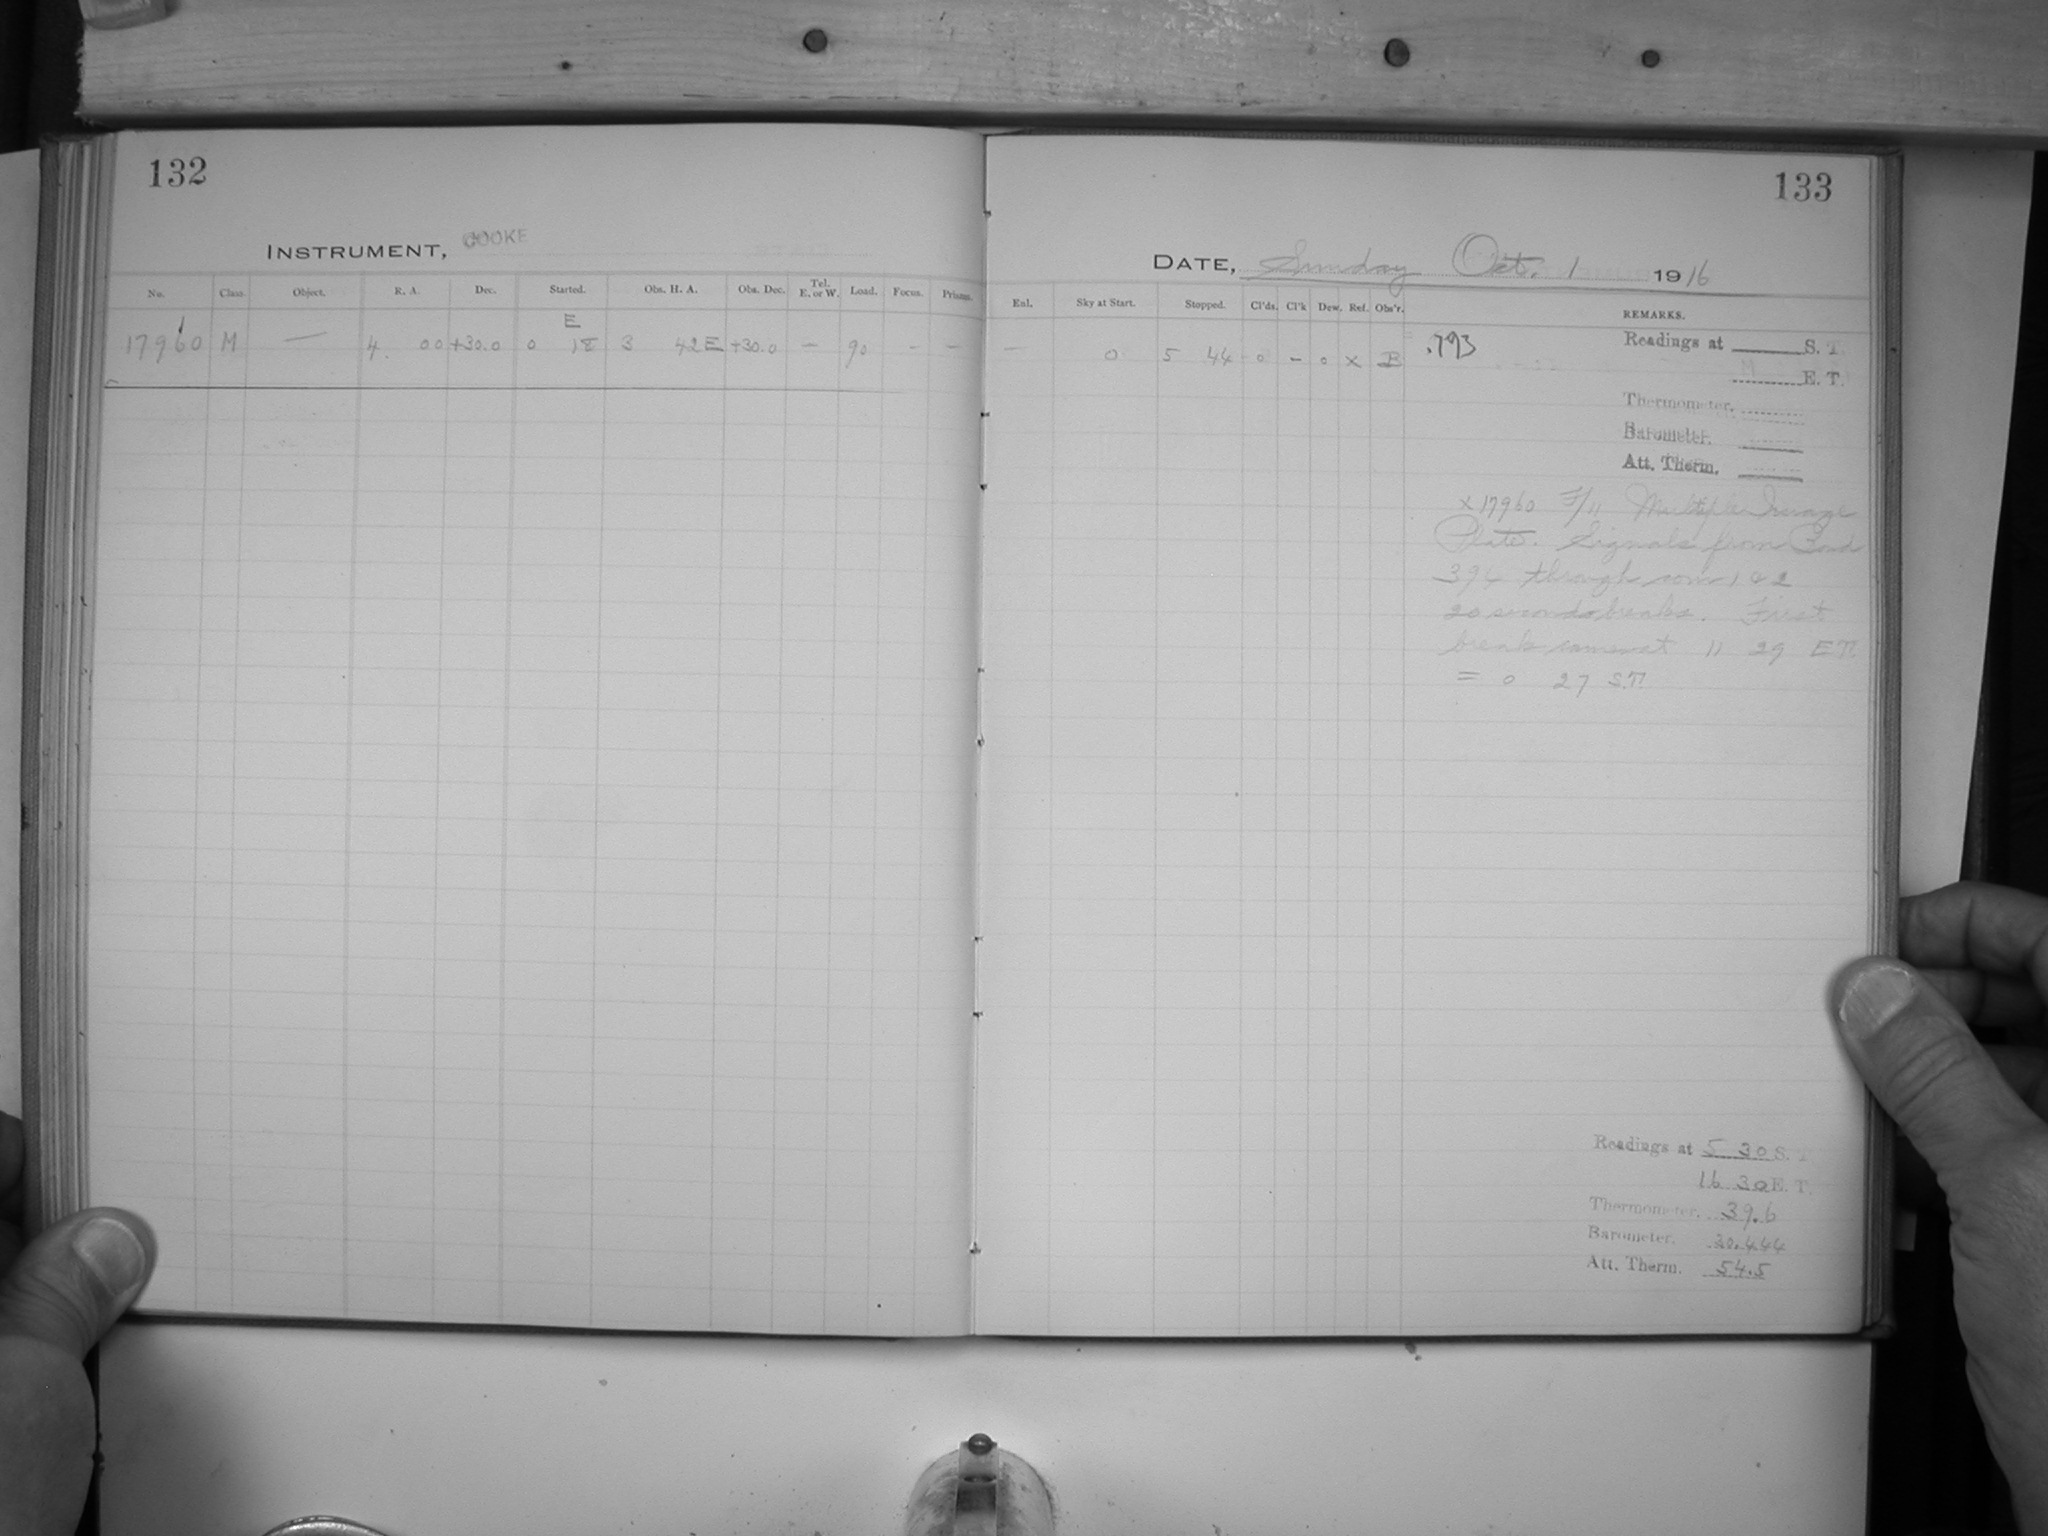 132
INSTRUMENT, COOKE
No. Class. Object. R. A. Dec. Started. Obs. H. A. Obs. Dec. Tel. E. or W. Load. Focus. Prisms.
E
17960 M — 4 00 +30.0 0 18 3 42 E +30.0 — 90 - —
133
DATE, Sunday Oct. 1 1916
Enl. Sky at Start. Stopped. Cl'ds. Cl'k Dew. Ref. Obs'r. REMARKS.
— 0 5 44 0 - 0 x B .793
Readings at S. T.
E. T.
Thermometer.
Barometer.
Att. Therm.
x 17960 F/11 Multiple Image
Plate. Signals from Bond
394 through com 1 & 2
20 seconds breaks. First
break comes at 11 29 E.T.
= 0 27 S.T.
Readings at 5 30 S.
16 30 E. T.
Thermometer. 39.6
Barometer. 30.444
Att. Therm. 54.5